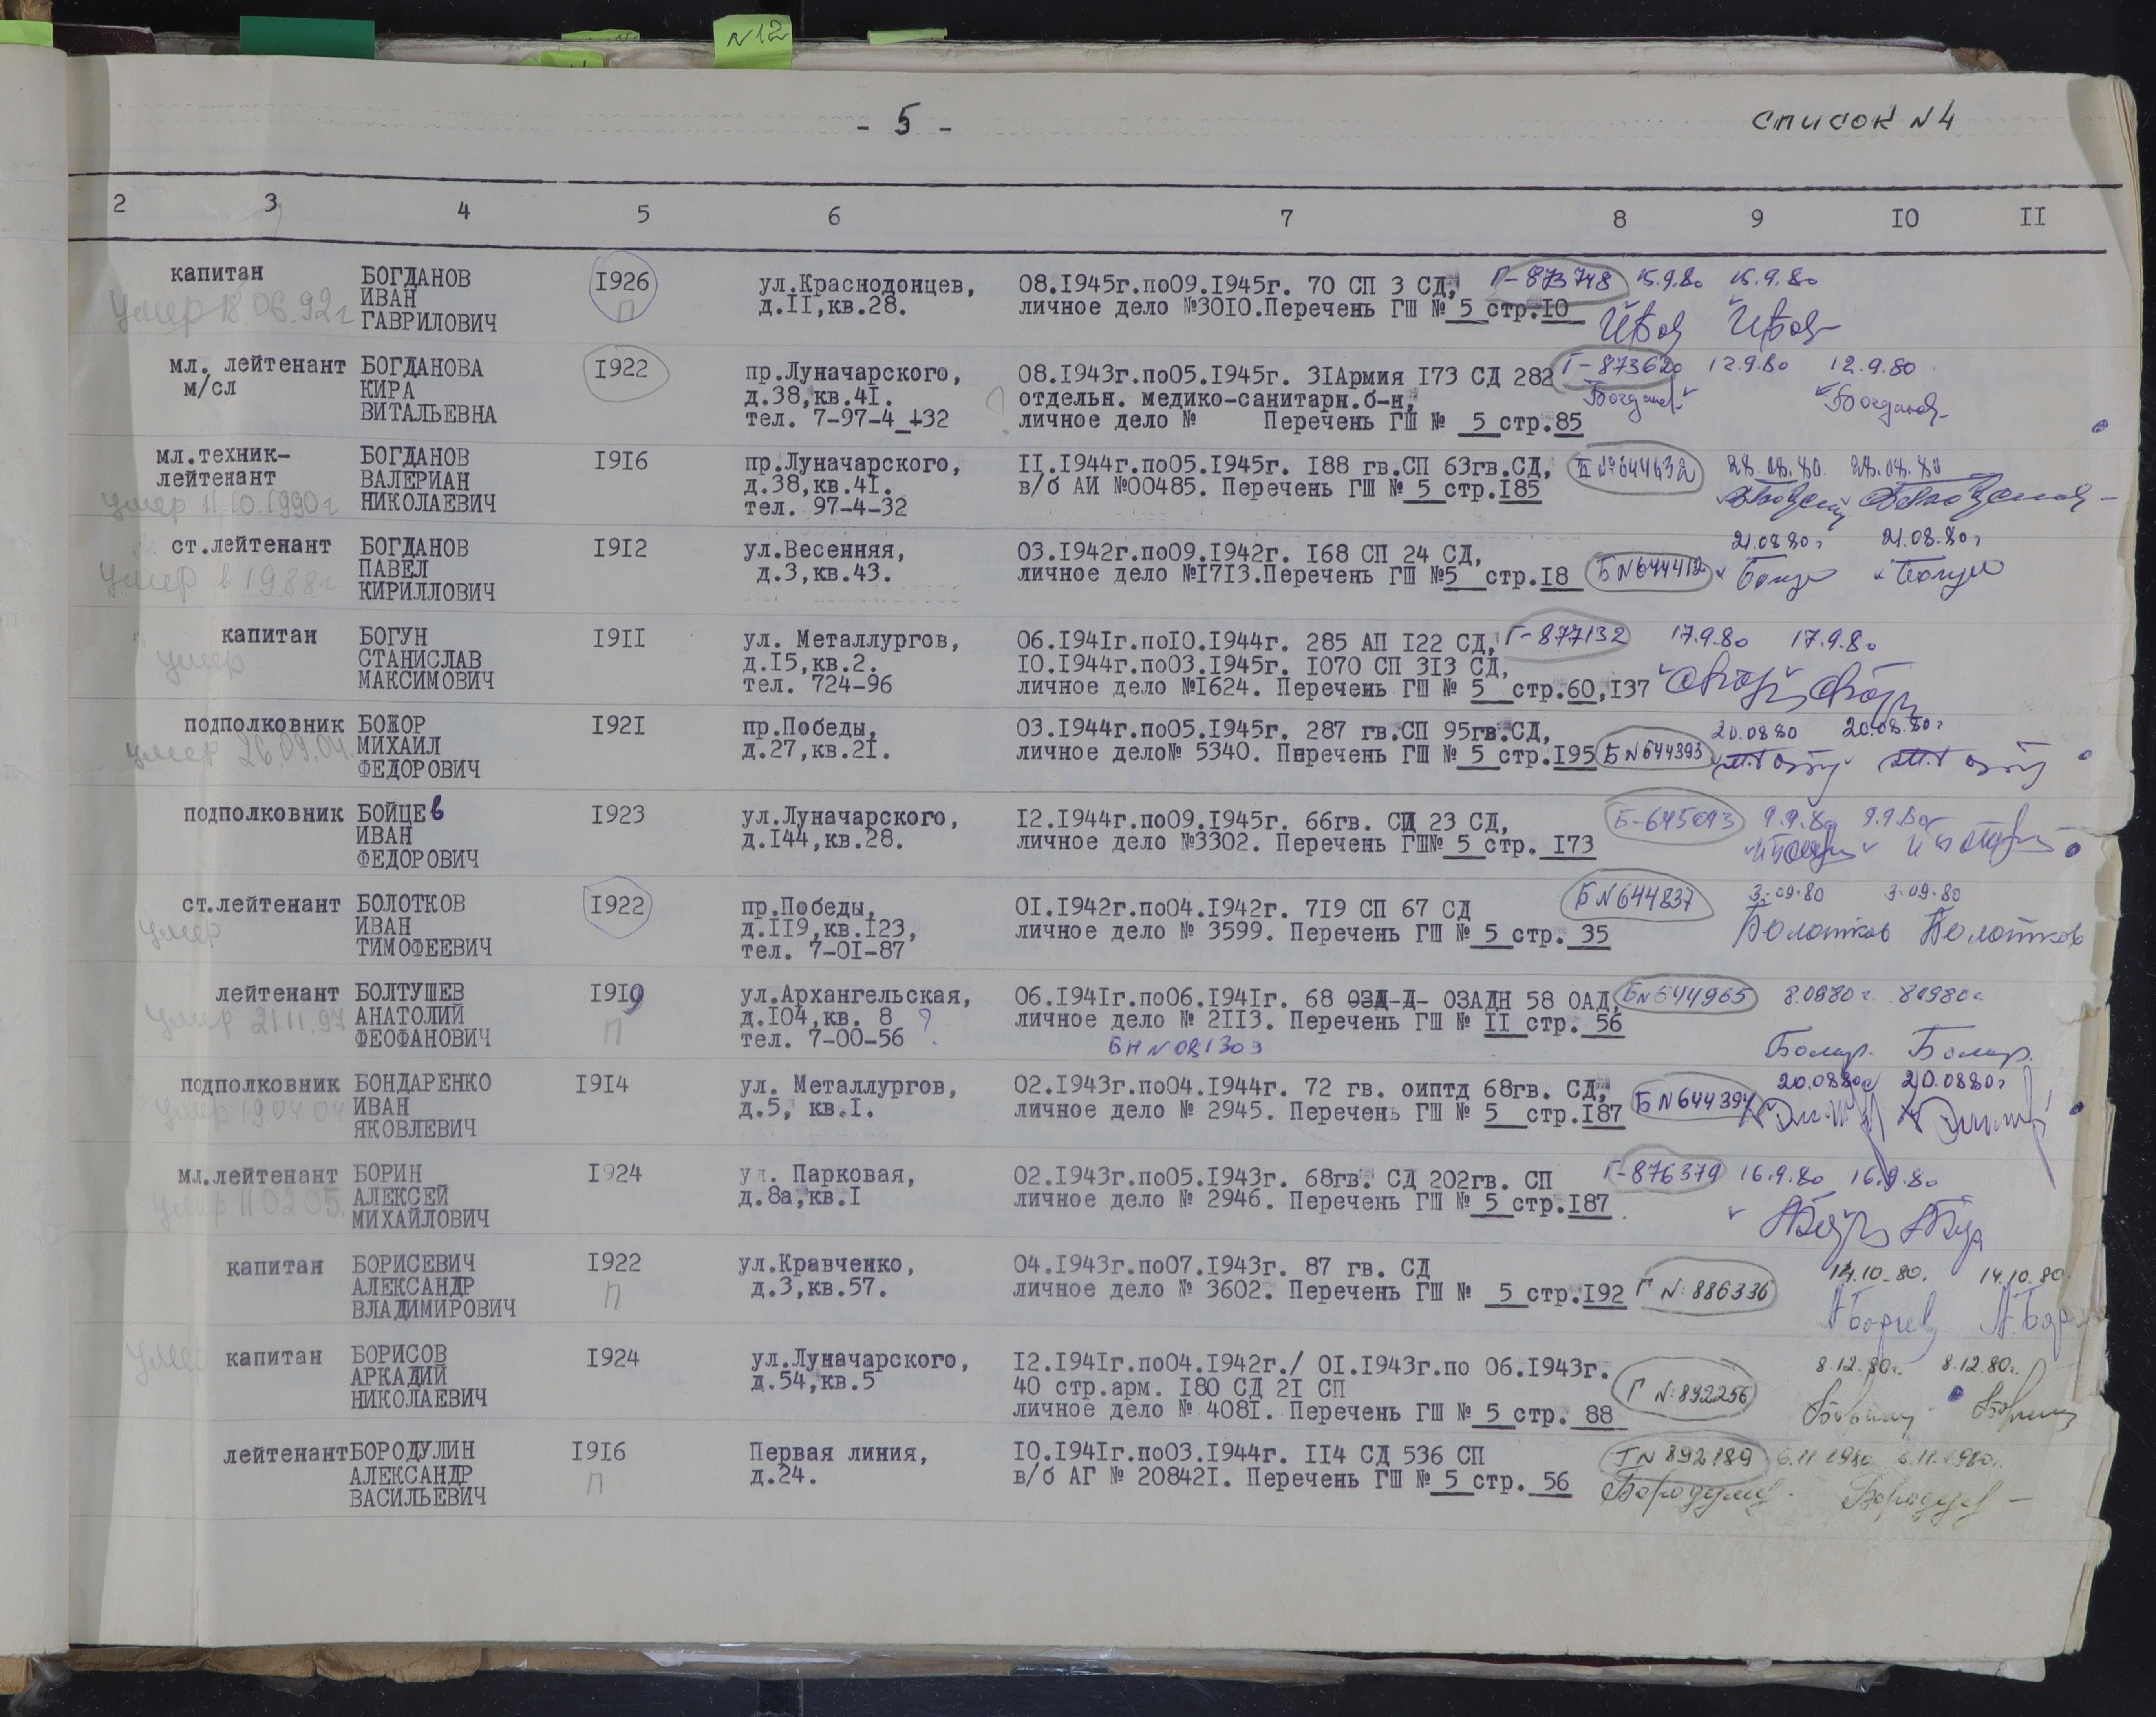 N12
- 5 -
список N4
2 3 4 5 6 7 8 9 I0 II
капитан БОГДАНОВ I926 ул.Краснодонцев, 08.I945г.по09.I945г. 70 СП 3 СД, Г-873748 15.9.80 15.9.80
умер 18.06.92г ИВАН П д.II,кв.28. личное дело №30I0.Перечень ГШ № 5 стр.I0
ГАВРИЛОВИЧ
мл. лейтенант БОГДАНОВА I922 пр.Луначарского, 08.I943г.по05.I945г. 3IАрмия I73 СД 282 Г-873620 12.9.80 12.9.80
м/сл КИРА д.38,кв.4I. отдельн. медико-санитарн.б-н, Богданов Богданов
ВИТАЛЬЕВНА тел. 7-97-4 +32 личное дело № Перечень ГШ № 5 стр.85
мл.техник- БОГДАНОВ I9I6 пр.Луначарского, II.I944г.по05.I945г. I88 гв.СП 63гв.СД, Б №644632 28.08.80. 28.08.80
лейтенант ВАЛЕРИАН д.38,кв.4I. в/б АИ №00485. Перечень ГШ № 5 стр.I85
умер 11.10.1990г НИКОЛАЕВИЧ тел. 97-4-32
ст.лейтенант БОГДАНОВ I9I2 ул.Весенняя, 03.I942г.по09.I942г. I68 СП 24 СД, 21.08 80г 21.08.80г
умер в 1988г ПАВЕЛ д.3,кв.43. личное дело №I7I3.Перечень ГШ №5 стр.I8 Б N644412
КИРИЛЛОВИЧ
капитан БОГУН I9II ул. Металлургов, 06.I94Iг.поI0.I944г. 285 АП I22 СД, Г-877132 17.9.80 17.9.80
умер СТАНИСЛАВ д.I5,кв.2. I0.I944г.по03.I945г. I070 СП 3I3 СД,
МАКСИМОВИЧ тел. 724-96 личное дело №I624. Перечень ГШ № 5 стр.60,I37
подполковник БОЖОР I92I пр.Победы, 03.I944г.по05.I945г. 287 гв.СП 95гв.СД, 20.08 80 20.08.80г
умер 26.09.04. МИХАИЛ д.27,кв.2I. личное дело№ 5340. Перечень ГШ № 5 стр.I95 Б N644393
ФЕДОРОВИЧ
подполковник БОЙЦЕв I923 ул.Луначарского, I2.I944г.по09.I945г. 66гв. СП 23 СД, Б-645093 9.9.80 9.9.80г
ИВАН д.I44,кв.28. личное дело №3302. Перечень ГШ№ 5 стр. I73
ФЕДОРОВИЧ
ст.лейтенант БОЛОТКОВ I922 пр.Победы, 0I.I942г.по04.I942г. 7I9 СП 67 СД Б N644837 3.09.80 3.09.80
умер ИВАН д.II9,кв.I23, личное дело № 3599. Перечень ГШ № 5 стр. 35 Болотков Болотков
ТИМОФЕЕВИЧ тел. 7-0I-87
лейтенант БОЛТУШЕВ I919 ул.Архангельская, 06.I94Iг.по06.I94Iг. 68 ОЗД-Д- ОЗАДН 58 ОАД, БN644965 8.0980г. 80980г
умер 21.11.97 АНАТОЛИЙ П д.I04,кв. 8 ? личное дело № 2II3. Перечень ГШ № II стр. 56
ФЕОФАНОВИЧ тел. 7-00-56 БН N081309
подполковник БОНДАРЕНКО I9I4 ул. Металлургов, 02.I943г.по04.I944г. 72 гв. оиптд 68гв. СД, 20.0880г 20.0880г
умер 19 04 04 ИВАН д.5, кв.I. личное дело № 2945. Перечень ГШ № 5 стр.I87 Б N644394
ЯКОВЛЕВИЧ
мл.лейтенант БОРИН I924 ул. Парковая, 02.I943г.по05.I943г. 68гв. СД 202гв. СП Г-876379 16.9.80 16.9.80
умер 11 02 05. АЛЕКСЕЙ д.8а,кв.I личное дело № 2946. Перечень ГШ № 5 стр.I87
МИХАЙЛОВИЧ
капитан БОРИСЕВИЧ I922 ул.Кравченко, 04.I943г.по07.I943г. 87 гв. СД 14.10.80. 14.10.80
АЛЕКСАНДР П д.3,кв.57. личное дело № 3602. Перечень ГШ № 5 стр.I92 Г N: 886336
ВЛАДИМИРОВИЧ
умер капитан БОРИСОВ I924 ул.Луначарского, I2.I94Iг.по04.I942г./ 0I.I943г.по 06.I943г. 8.12.80г. 8.12.80г.
АРКАДИЙ д.54,кв.5 40 стр.арм. I80 СД 2I СП Г N:892256
НИКОЛАЕВИЧ личное дело № 408I. Перечень ГШ № 5 стр. 88
лейтенант БОРОДУЛИН I9I6 Первая линия, I0.I94Iг.по03.I944г. II4 СД 536 СП Г N 892189 6.11 1980 6.11.1980г.
АЛЕКСАНДР П д.24. в/б АГ № 20842I. Перечень ГШ № 5 стр. 56 Бородулин
ВАСИЛЬЕВИЧ